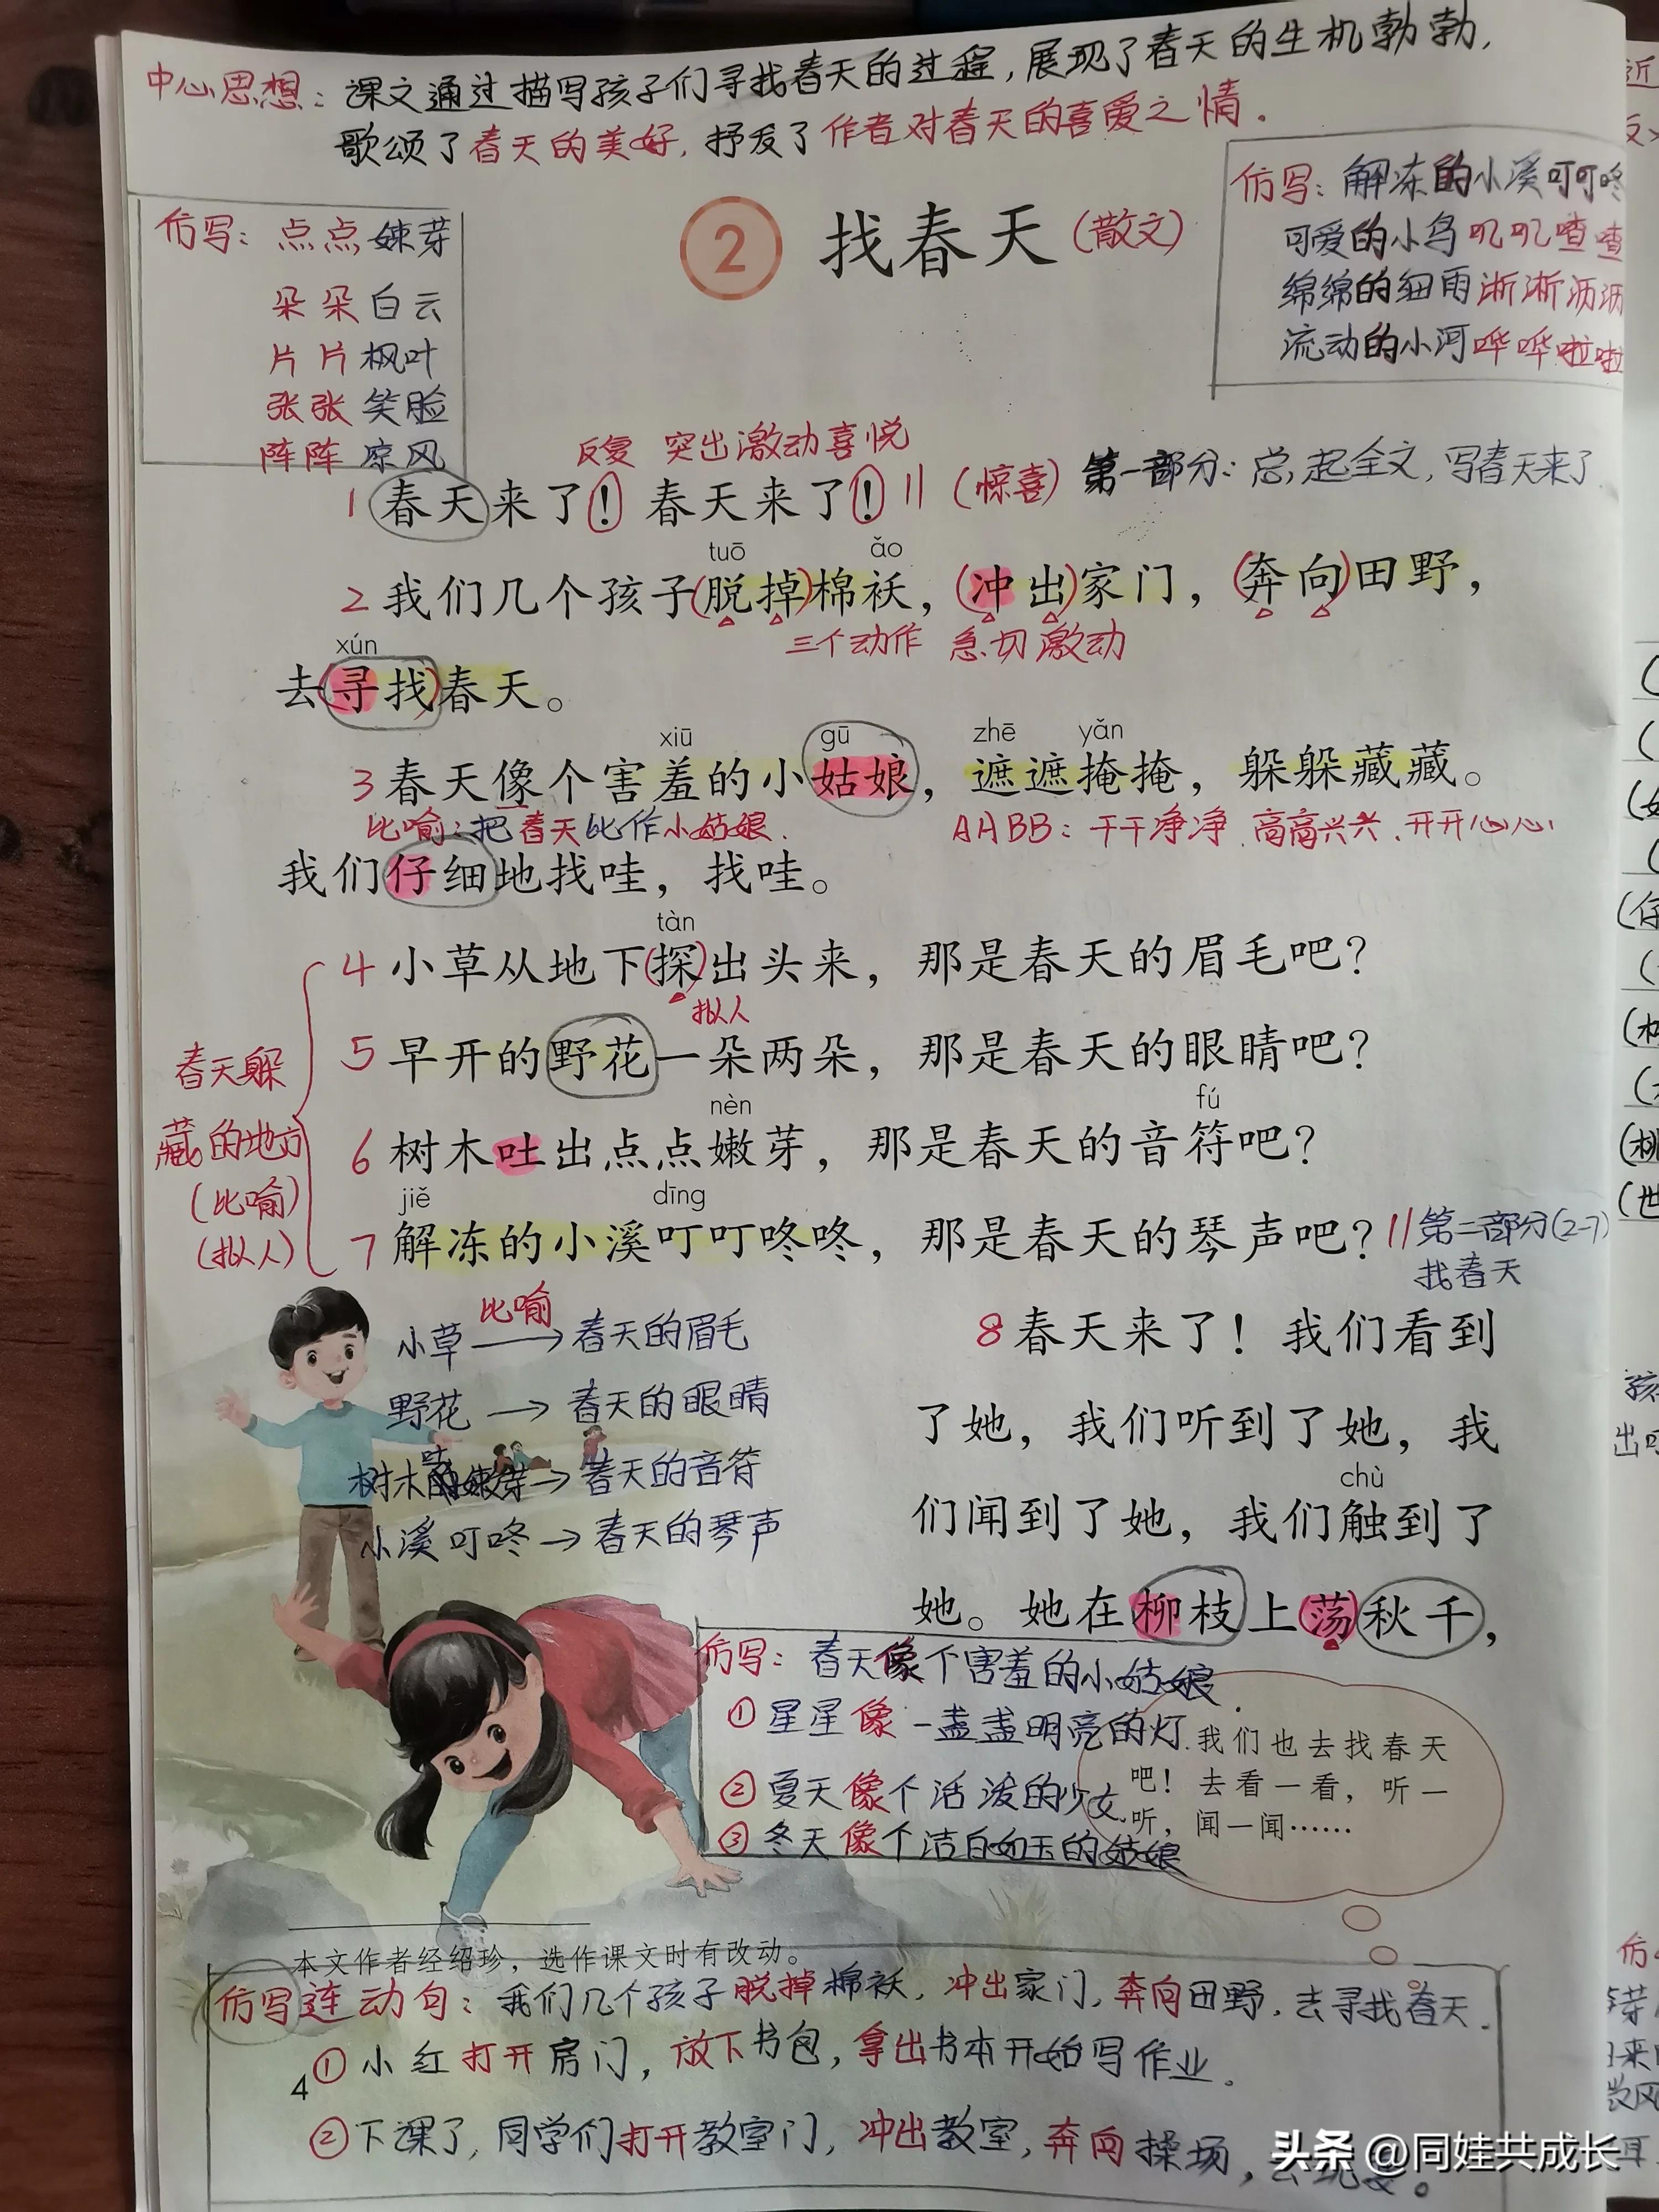 中心思想：课文通过描写孩子们寻找春天的过程，展现了春天的生机勃勃，
歌颂了春天的美好，抒发了作者对春天的喜爱之情。
仿写：点点嫩芽
朵朵白云
片片枫叶
张张笑脸
阵阵凉风
2 找春天（散文）
仿写：解冻的小溪叮叮咚
可爱的小鸟叽叽喳喳
绵绵的细雨淅淅沥沥
流动的小河哗哗啦啦
反复 突出激动喜悦
1 春天来了！春天来了！ （惊喜） 第一部分：总起全文，写春天来了
tuō ǎo
2 我们几个孩子(脱掉)棉袄，(冲出)家门，(奔向)田野，
三个动作 急切激动
xún
去(寻找)春天。
xiū gū zhē yǎn
3 春天像个害羞的小姑娘，遮遮掩掩，躲躲藏藏。
比喻：把春天比作小姑娘. AABB：干干净净.高高兴兴.开开心心
我们仔细地找哇，找哇。
tàn
4 小草从地下(探)出头来，那是春天的眉毛吧？
拟人
5 早开的野花一朵两朵，那是春天的眼睛吧？
nèn fú
6 树木吐出点点嫩芽，那是春天的音符吧？
jiě dīng
7 解冻的小溪叮叮咚咚，那是春天的琴声吧？ 第二部分(2-7)
找春天
春天躲
藏的地方
（比喻）
（拟人）
比喻
小草→春天的眉毛
野花→春天的眼睛
树木嫩芽→春天的音符
小溪叮咚→春天的琴声
8 春天来了！我们看到
了她，我们听到了她，我
chù
们闻到了她，我们触到了
她。她在柳枝上荡秋千，
仿写：春天像个害羞的小姑娘
①星星像一盏盏明亮的灯.
②夏天像个活泼的少女.
③冬天像个洁白如玉的姑娘
我们也去找春天
吧！去看一看，听一
听，闻一闻……
本文作者经绍珍，选作课文时有改动。
仿写连动句：我们几个孩子脱掉棉袄，冲出家门，奔向田野，去寻找春天.
①小红打开房门，放下书包，拿出书本开始写作业.
4
②下课了，同学们打开教室门，冲出教室，奔向操场，去玩。
头条 @同娃共成长